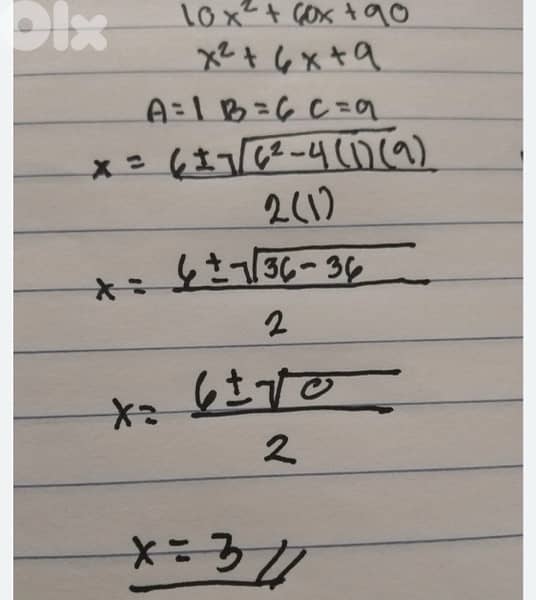 Olx
10x² + 60x + 90
x² + 6x + 9
A = 1 B = 6 C = 9
x = 6 ± √6² - 4(1)(9)
2(1)
x = 6 ± √36 - 36
2
x = 6 ± √0
2
x = 3 //